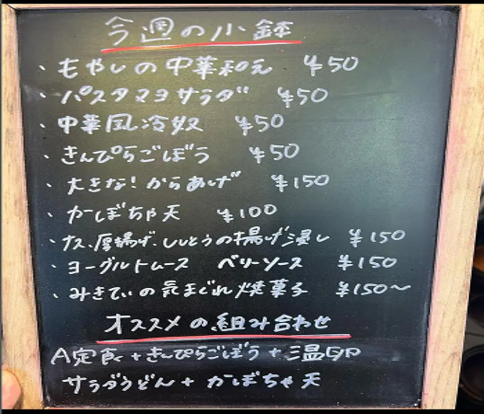 今週の小鉢
・もやしの中華和え ¥50
・パスタマヨサラダ ¥50
・中華風冷奴 ¥50
・きんぴらごぼう ¥50
・大きな!からあげ ¥150
・かぼちゃ天 ¥100
・ナス、厚揚げ、ししとうの揚げ浸し ¥150
・ヨーグルトムース ベリーソース ¥150
・みきてぃの気まぐれ焼菓子 ¥150〜
オススメの組み合わせ
A定食+きんぴらごぼう+温玉
サラダうどん+かぼちゃ天